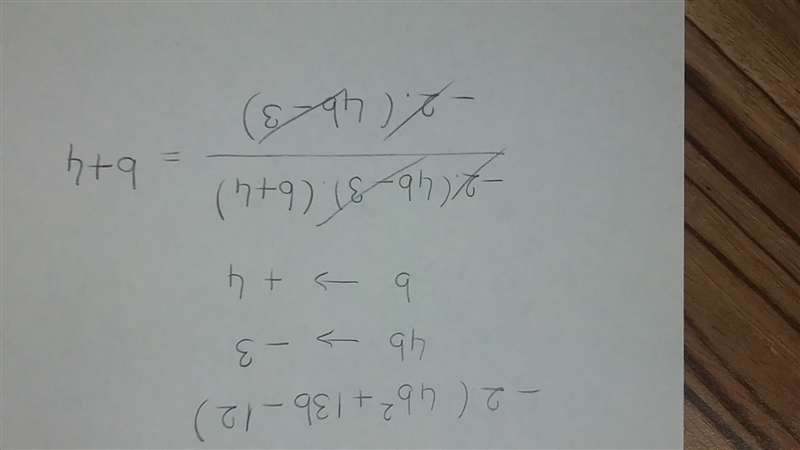 -2 ( 4b² + 13b - 12 )
4b → - 3
b → + 4
-2.(4b-3).(b+4)
-2.(4b-3)
= b+4